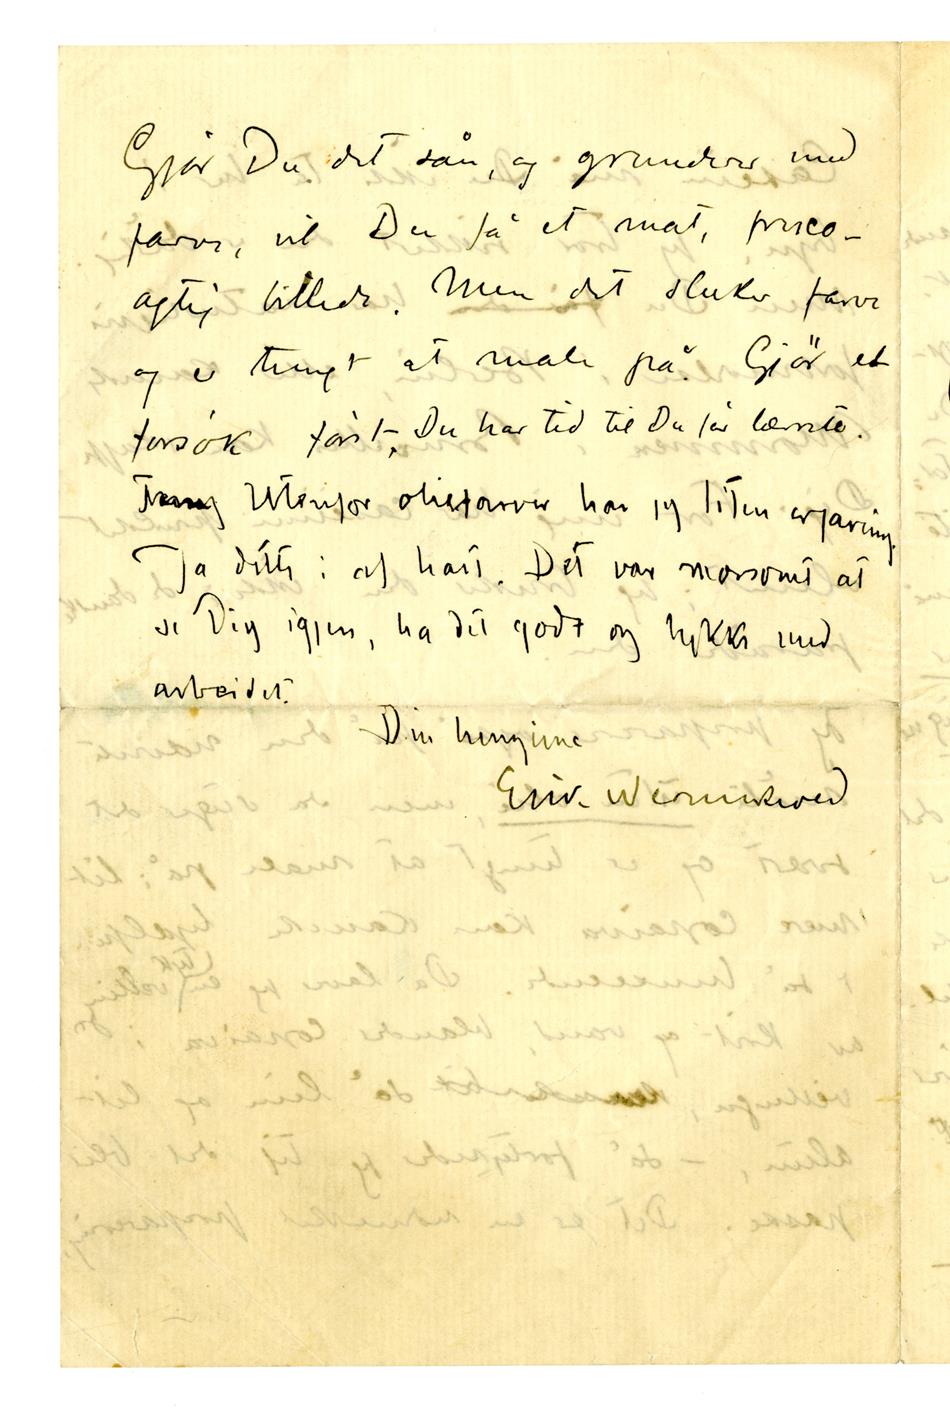 Gjör Du det sån, og grunderer med
farve, vil Du få et mat, fresco-
agtig billede. Men det sluker farve
og er tungt at male på. Gjör et
forsök först, Du har tid til Du får lærrete.
Utenfor oliefarver har jeg liten erfaring.
Ja dette i al hast. Det var morsomt at
se Dig igjen, ha det godt og lykke med
arbeidet.
Din hengivne
Erik Werenskiold